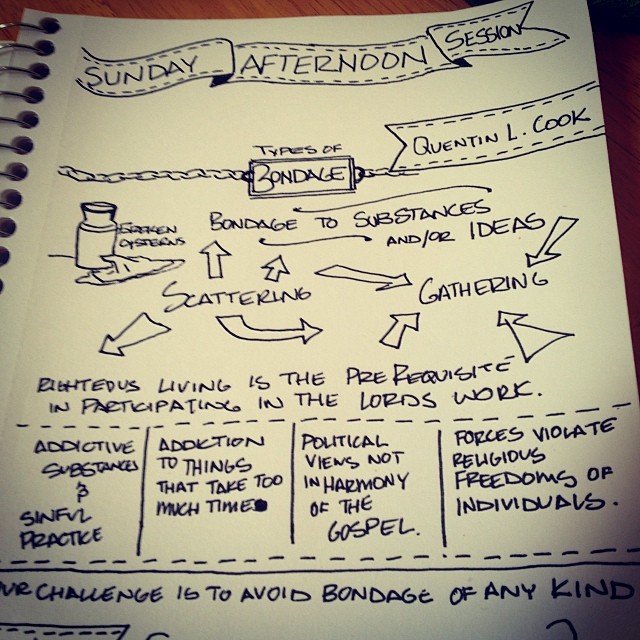 SUNDAY AFTERNOON SESSION
QUENTIN L. COOK
TYPES OF
BONDAGE
BROKEN
CISTERNS
BONDAGE TO SUBSTANCES
AND/OR IDEAS
SCATTERING
GATHERING
RIGHTEOUS LIVING IS THE PREREQUISITE
IN PARTICIPATING IN THE LORDS WORK.
ADDICTIVE
SUBSTANCES
&
SINFUL
PRACTICE
ADDICTION
TO THINGS
THAT TAKE TOO
MUCH TIME
POLITICAL
VIEWS NOT
IN HARMONY
OF THE
GOSPEL.
FORCES VIOLATE
RELIGIOUS
FREEDOMS OF
INDIVIDUALS.
UR CHALLENGE IS TO AVOID BONDAGE OF ANY KIND